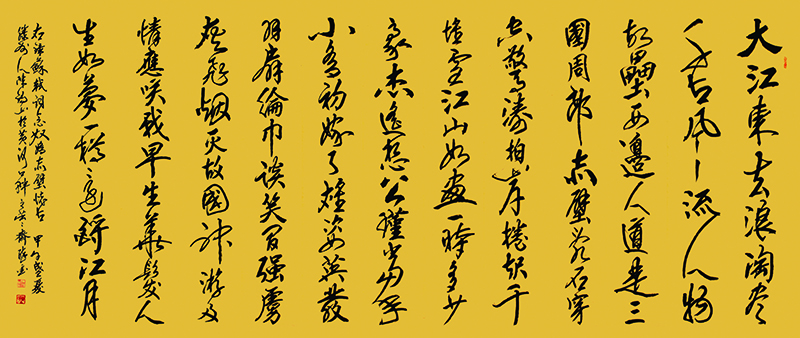 大江東去浪淘尽
千古風流人物
故壘西邊人道是三
國周郎赤壁亂石穿
空驚濤拍岸捲起千
堆雪江山如畫一時多少
豪杰遙想公瑾當年
小喬初嫁了雄姿英發
羽扇綸巾談笑間强虜
灰飛烟灭故國神游多
情應笑我早生華髮人
生如夢一樽還酹江月
右錄蘇軾詞念奴嬌赤壁懷古 甲午盛夏